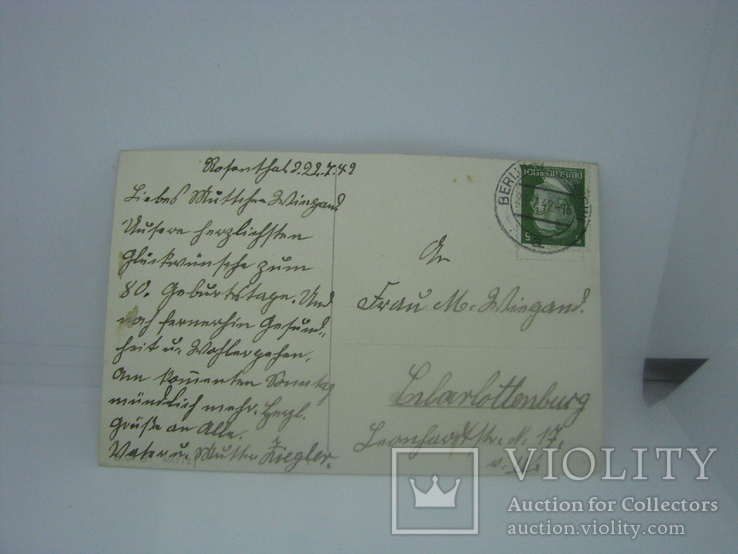 Rosenthal d. 22.7.42
Liebes Muttchen Wiegand
Unsere herzlichsten
Glückwünsche zum
80. Geburtstage. Und
noch fernerhin Gesund-
heit u. Wohlergehen.
Am kommenten Sonntag
mündlich mehr. Herzl.
Grüße an Alle.
Vater u. Mutter Ziegler.
BERLIN
42
An
Frau M. Wiegand.
Charlottenburg
Leonhardtstr. N. 17.
VIOLITY
Auction for Collectors
auction.violity.com